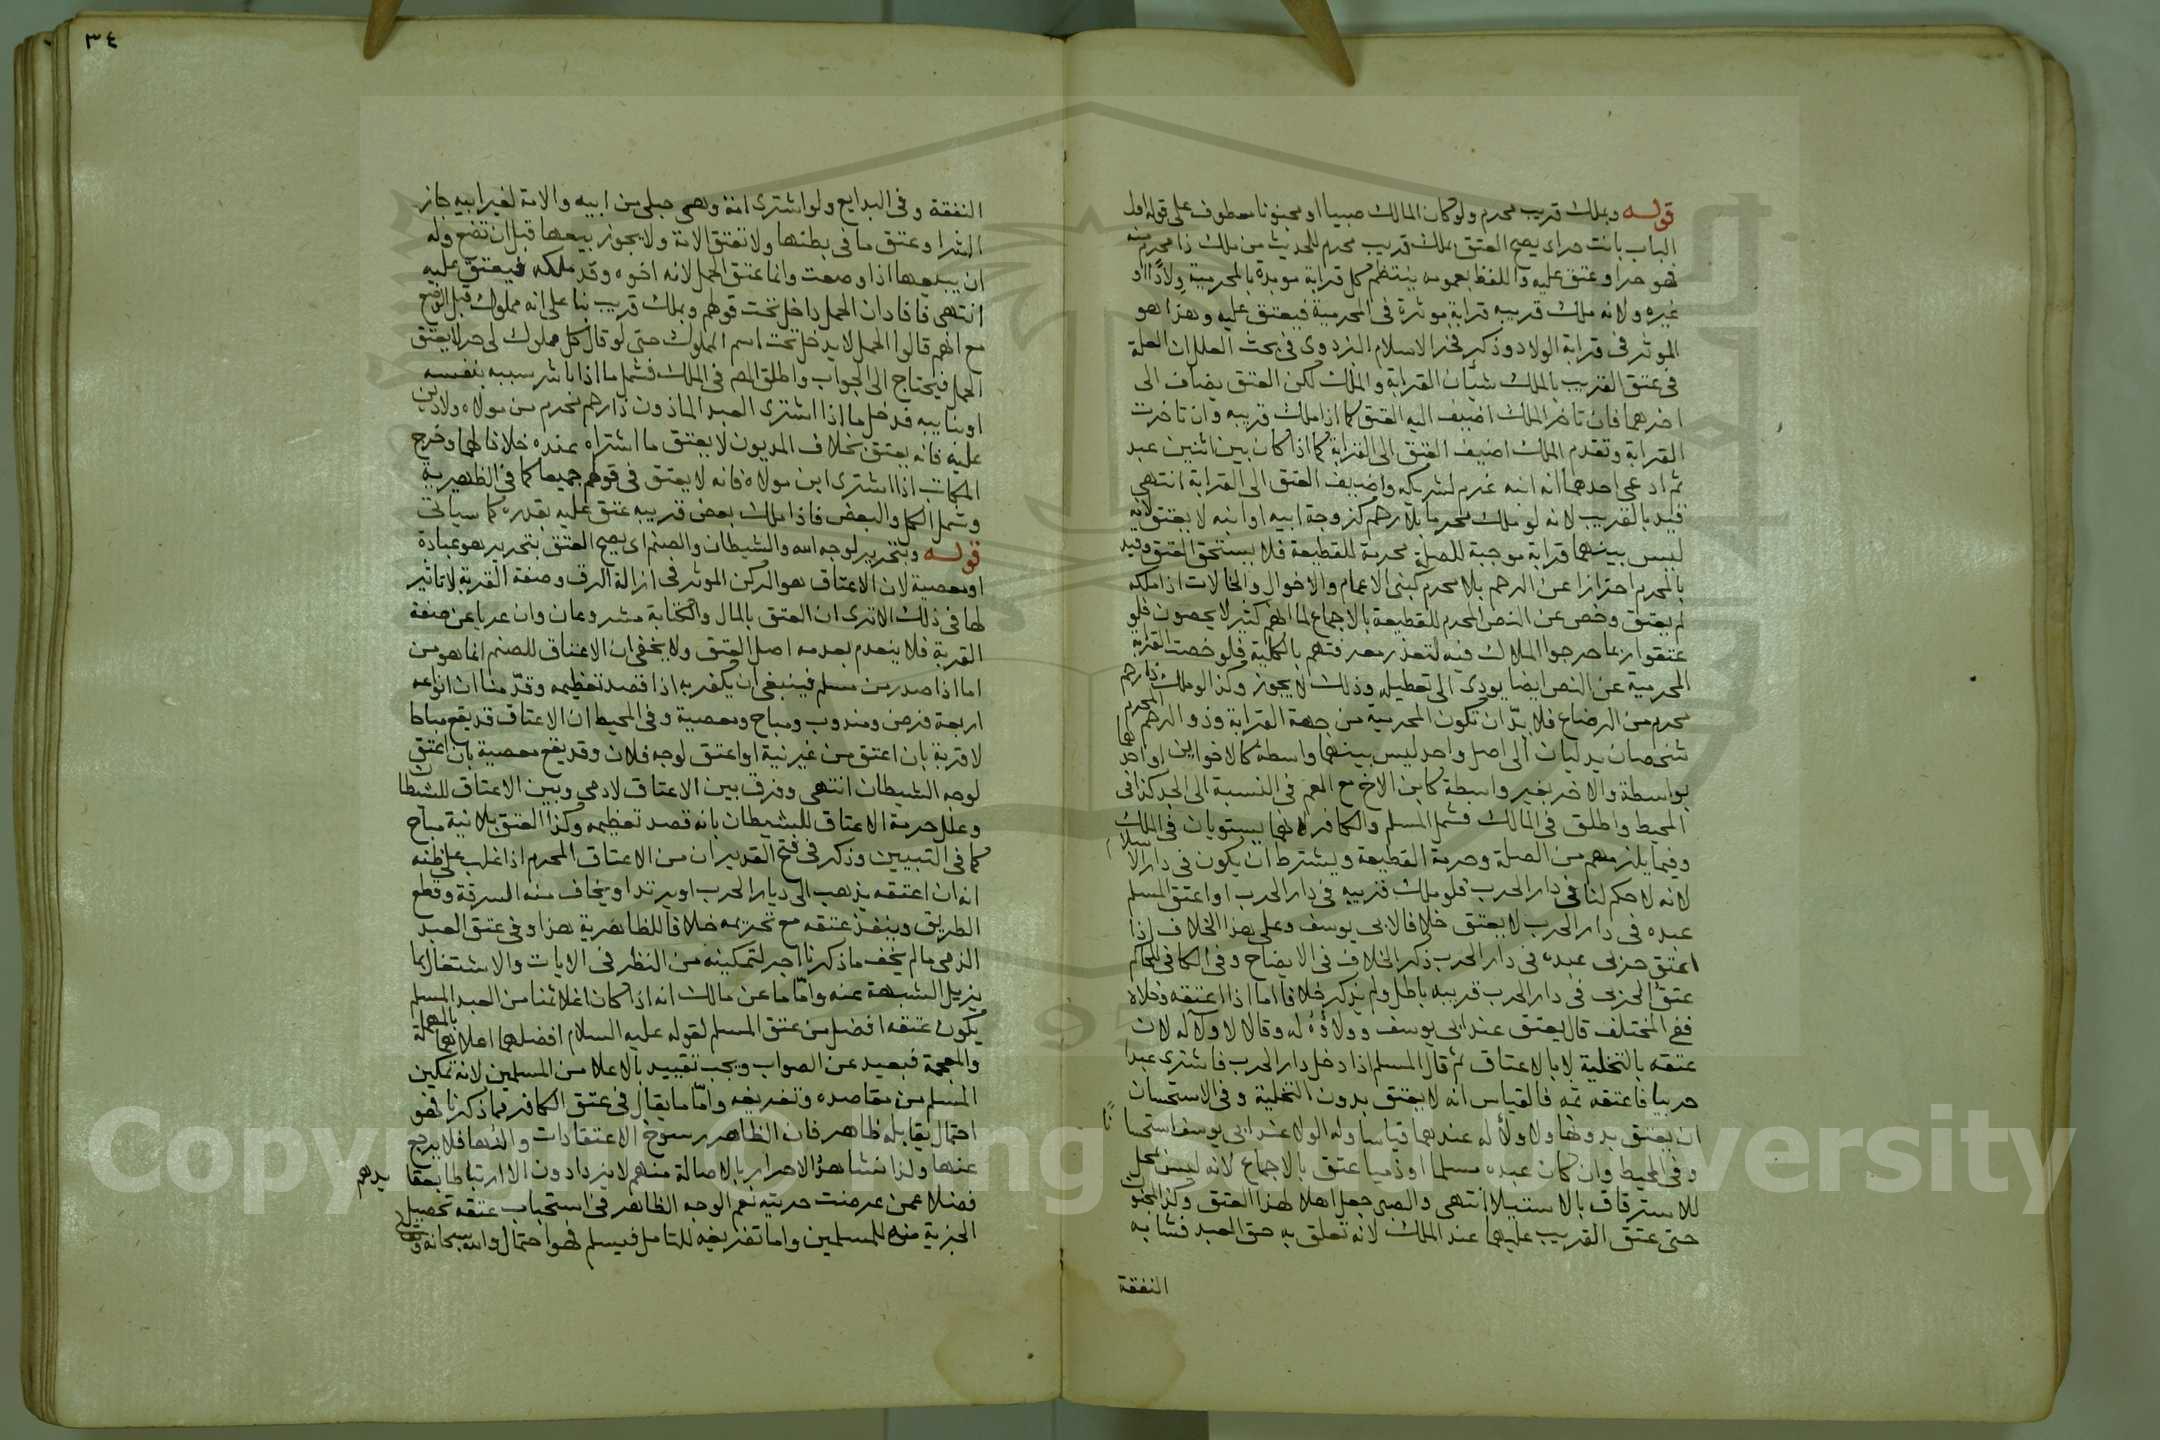 قوله وبملك قريب محرم ولو كان المالك صبيا او مجنونا معطوف على قوله اول
الباب بانت حر اى يصح العتق بملك قريب محرم للحديث من ملك ذا محرم منه
فهو حر او عتق عليه واللفظ بعمومه ينتظم كل قرابة موبدة بالمحرمية ولادا او
غيره ولانه ملك قريبه قرابة موثرة فى المحرمية فيعتق عليه وهذا هو
الموثر فى قرابة الولاد وذكر فخر الاسلام البزدوى فى بحث العلل ان العلة
فى عتق القريب بالملك شيآن القرابة والملك لكن العتق يضاف الى
اخرهما فان تاخر الملك اضيف اليه العتق كما اذا ملك قريبه وان تاخرت
القرابة وتقدم الملك اضيف العتق الى القرابة كما اذا كان بين اثنين عبد
ثم ادعى احدهما انه ابنه غرم لشريكه واضيف العتق الى القرابة انتهى
قيد بالقريب لانه لو ملك محرما بلا رحم كزوجة ابيه او ابنه لا يعتق لانه
ليس بينهما قرابة موجبة للصلة محرمة للقطيعة فلا يستحق العتق وقيد
بالمحرم احترازا عن الرحم بلا محرم كبنى الاعمام والاخوال والخالات اذا ملكه
لم يعتق وخص عن النص المحرم للقطيعة بالاجماع لما انهم كثير لا يحصون فلو
عتقوا ربما حرجوا الملاك فيه لتعذر معرفتهم بالكلية فلو خصت القرابة
المحرمية عن النص ايضا يودى الى تعطيله وذلك لا يجوز وكذا لو ملك ذا رحم
محرم من الرضاع فلا بدّ ان تكون المحرمية من جهة القرابة وذو الرحم المحرم
شخصان يدليان الى اصل واحد ليس بينهما واسطة كالاخوين او احدهما
بواسطة والاخر بغير واسطة كابن الاخ مع العم فى النسبة الى الجد كذا فى
المحيط واطلق فى المالك فشمل المسلم والكافر لانهما يستويان فى الملك
وفيما يلزمهم من الصلة وحرمة القطيعة ويشترط ان يكون فى دار الاسلام
لانه لا حكم لنا فى دار الحرب فلو ملك قريبه فى دار الحرب او اعتق المسلم
عبده فى دار الحرب لا يعتق خلافا لابى يوسف وعلى هذا الخلاف اذا
اعتق حربى عبده فى دار الحرب ذكر الخلاف فى الايضاح وفى الكافى للحاكم
عتق الحربى فى دار الحرب قريبه باطل ولم يذكر خلافا اما اذا اعتقه وخلاه
ففى المختلف قال يعتق عند ابى يوسف وولاؤه له وقالا لا ولا له لان
عتقه بالتخلية لا بالاعتاق ثم قال المسلم اذا دخل دار الحرب فاشترى عبدا
حربيا فاعتقه ثمه فالقياس انه لا يعتق بدون التخلية وفى الاستحسان
ان يعتق بدونها ولا ولاء له عندهما قياسا وله الولا عند ابى يوسف استحسانا
وفى المحيط وان كان عبده مسلما او ذميا عتق بالاجماع لانه ليس بمحل
للاسترقاق بالاستيلا انتهى والصبى جعل اهلا لهذا العتق وكذا المجنون
حتى عتق القريب عليهما عند الملك لانه تعلق به حق العبد فشابه
النفقة
٣٤
النفقة وفى البدايع ولو اشترى امة وهى حبلى من ابيه والامة لغير ابيه جاز
الشرا وعتق ما فى بطنها ولا تعتق الامة ولا يجوز بيعها قبل ان تضع وله
ان يبيعها اذا وضعت وانما عتق الحمل لانه اخوه وقد ملكه فيعتق عليه
انتهى فافاد ان الحمل داخل تحت قولهم وبملك قريب بنا على انه مملوك قبل الوضع
مع انهم قالوا الحمل لا يدخل تحت اسم المملوك حتى لو قال كل مملوك لى حر لا يعتق
الحمل فيحتاج الى الجواب واطلق المص فى الملك فشمل ما اذا باشر سببه بنفسه
او بنايبه فدخل ما اذا اشترى العبد الماذون ذا رحم محرم من مولاه ولا دين
عليه فانه يعتق بخلاف المديون لا يعتق ما اشتراه عنده خلافا لهما وخرج
المكاتب اذا اشترى ابن مولاه فانه لا يعتق فى قولهم جميعا كما فى الظهيرية
وشمل الكل والبعض فاذا ملك بعض قريبه عتق عليه بقدره كما سياتى
قوله وبتحرير لوجه الله والشيطان والصنم اى يصح العتق بتحرير هو عبادة
او معصية لان الاعتاق هو الركن الموثر فى ازالة الرق وصفة القربة لا تاثير
لها فى ذلك الا ترى ان العتق بالمال والكتابة مشروعان وان عريا عن صفة
القربة فلا ينعدم بعدمه اصل العتق ولا يخفى ان الاعتاق للصنم انما هو من
اما اذا صدر من مسلم فينبغى ان يكفر به اذا قصد تعظيمه وقدّمنا ان انواعه
اربعة فرض ومندوب ومباح ومعصية وفى المحيط ان الاعتاق قد يقع مباحا
لا قربة بان اعتق من غير نية او اعتق لوجه فلان وقد يقع معصية بان اعتق
لوجه الشيطان انتهى وفرق بين الاعتاق لادمى وبين الاعتاق للشيطان
وعلل حرمة الاعتاق للشيطان بانه قصد تعظيمه وكذا العتق بلا نية مباح
كما فى التبيين وذكر فى فتح القدير ان من الاعتاق المحرم اذا غلب على ظنه
انه ان اعتقه يذهب الى ديار الحرب او يرتد او يخاف منه السرقة وقطع
الطريق وينفذ عتقه مع تحريمه خلافا للظاهرية هذا وفى عتق العبد
الذمى ما لم يخف ما ذكرنا اجر لتمكينه من النظر فى الايات والاشتغال بما
يزيل الشبهة عنه وامّا ما عن مالك انه اذا كان اغلا ثمنا من العبد المسلم
يكون عتقه افضل من عتق المسلم لقوله عليه السلام افضلها اعلاها بالمهملة
والمعجمة فبعيد عن الصواب ويجب تقييد بالاعلا من المسلمين لانه تمكين
المسلم من مقاصده وتفريغه وامّا ما يقال فى عتق الكافر فما ذكرنا فهو
احتمال يقابله ظاهر فان الظاهر رسوخ الاعتقادات والفها فلا يرجع
عنها ولذا نشاهد الاحرار بالاصالة منهم لا يزدادون الا ارتباطا بعقايدهم
فضلا عمن عرضت حريته نعم الوجه الظاهر فى استحباب عتقه تحصيل
الجزية منه للمسلمين واما تفريغه للتامل فيسلم فهو احتمال والله سبحانه وتعالى